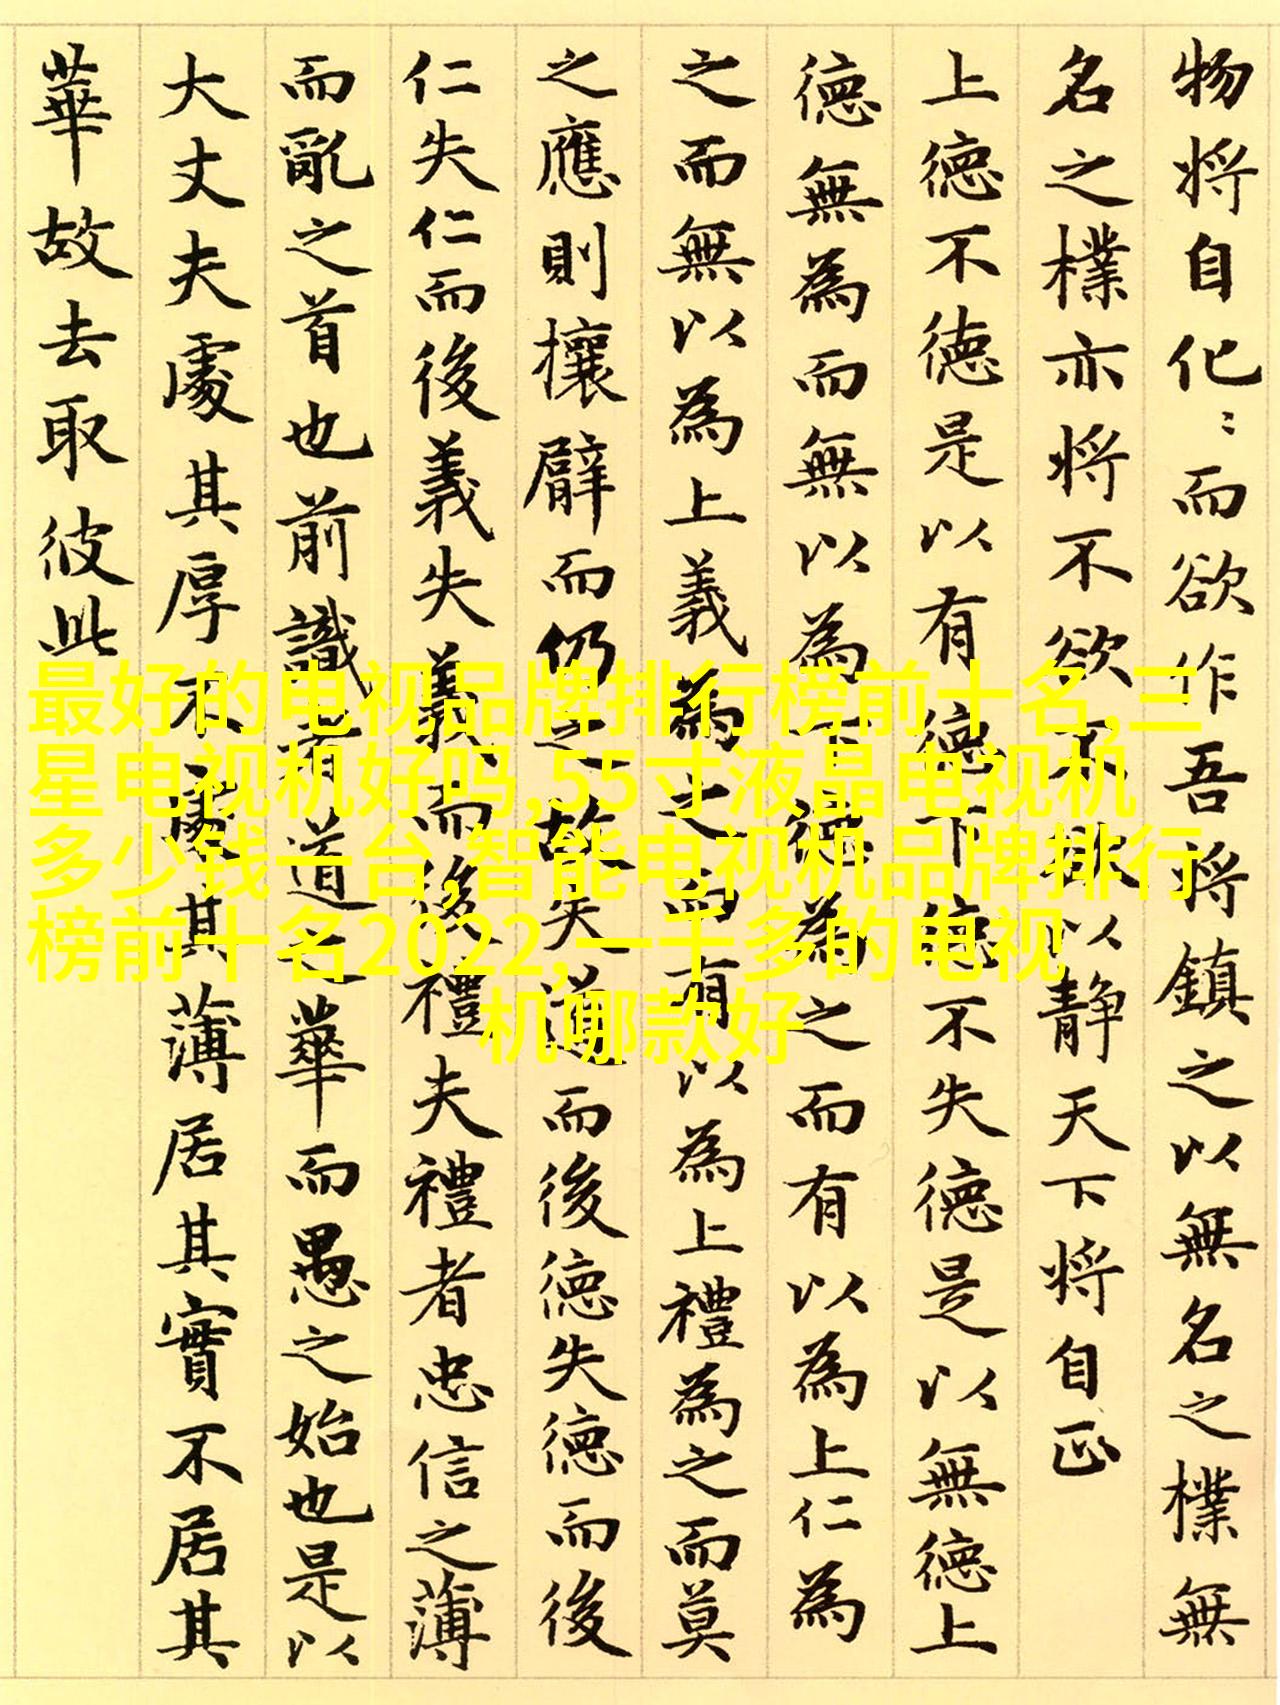 物将自化〻而欲作吾将鎮之以無名之樸無
名之樸亦将不欲不欲以静天下将自正
上德不德是以有德下德不失德是以無德上
德無為而無以為下德為之而有以為上仁為
之而無以為上義為之而有以為上禮為之而莫
之應則攘臂而仍之故失道而後德失德而後
仁失仁而後義失義而後禮夫禮者忠信之薄
而亂之首也前識者道之華而愚之始也是以
大丈夫處其厚不處其薄居其實不居其
華故去取彼此
最好的电视品牌排行榜前十名,三
星电视机好吗,55寸液晶电视机
多少钱一台,智能电视机品牌排行
榜前十名2022,一千多的电视
机哪款好